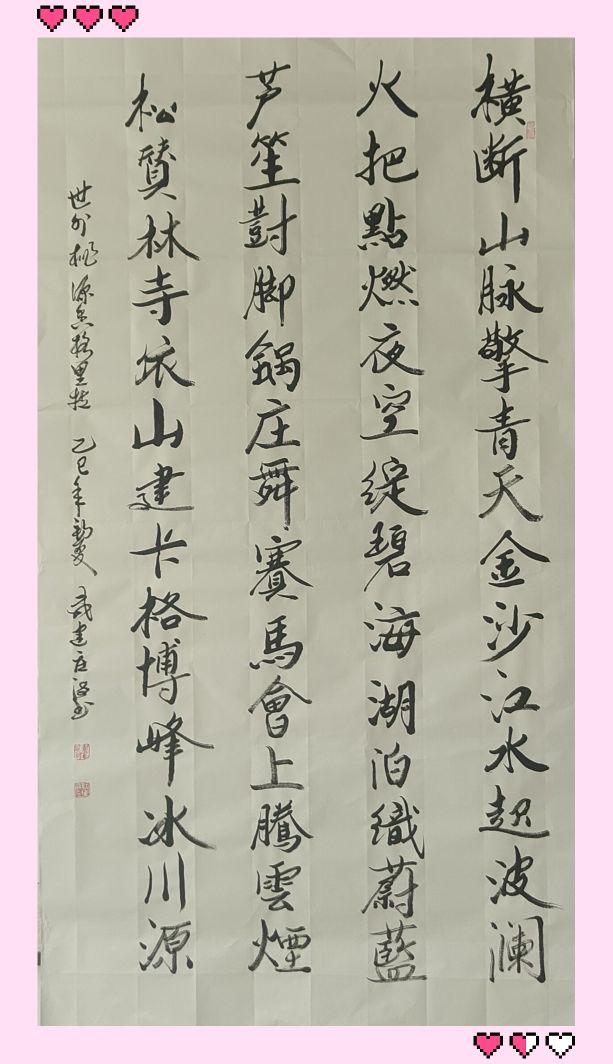 横断山脉擎青天金沙江水起波澜
火把點燃夜空绽碧海湖泊織蔚藍
芦笙對脚鍋庄舞賽馬會上騰雲煙
松賛林寺依山建卡格博峰冰川源
世外桃源香格里拉 乙巳年勤夏 武建